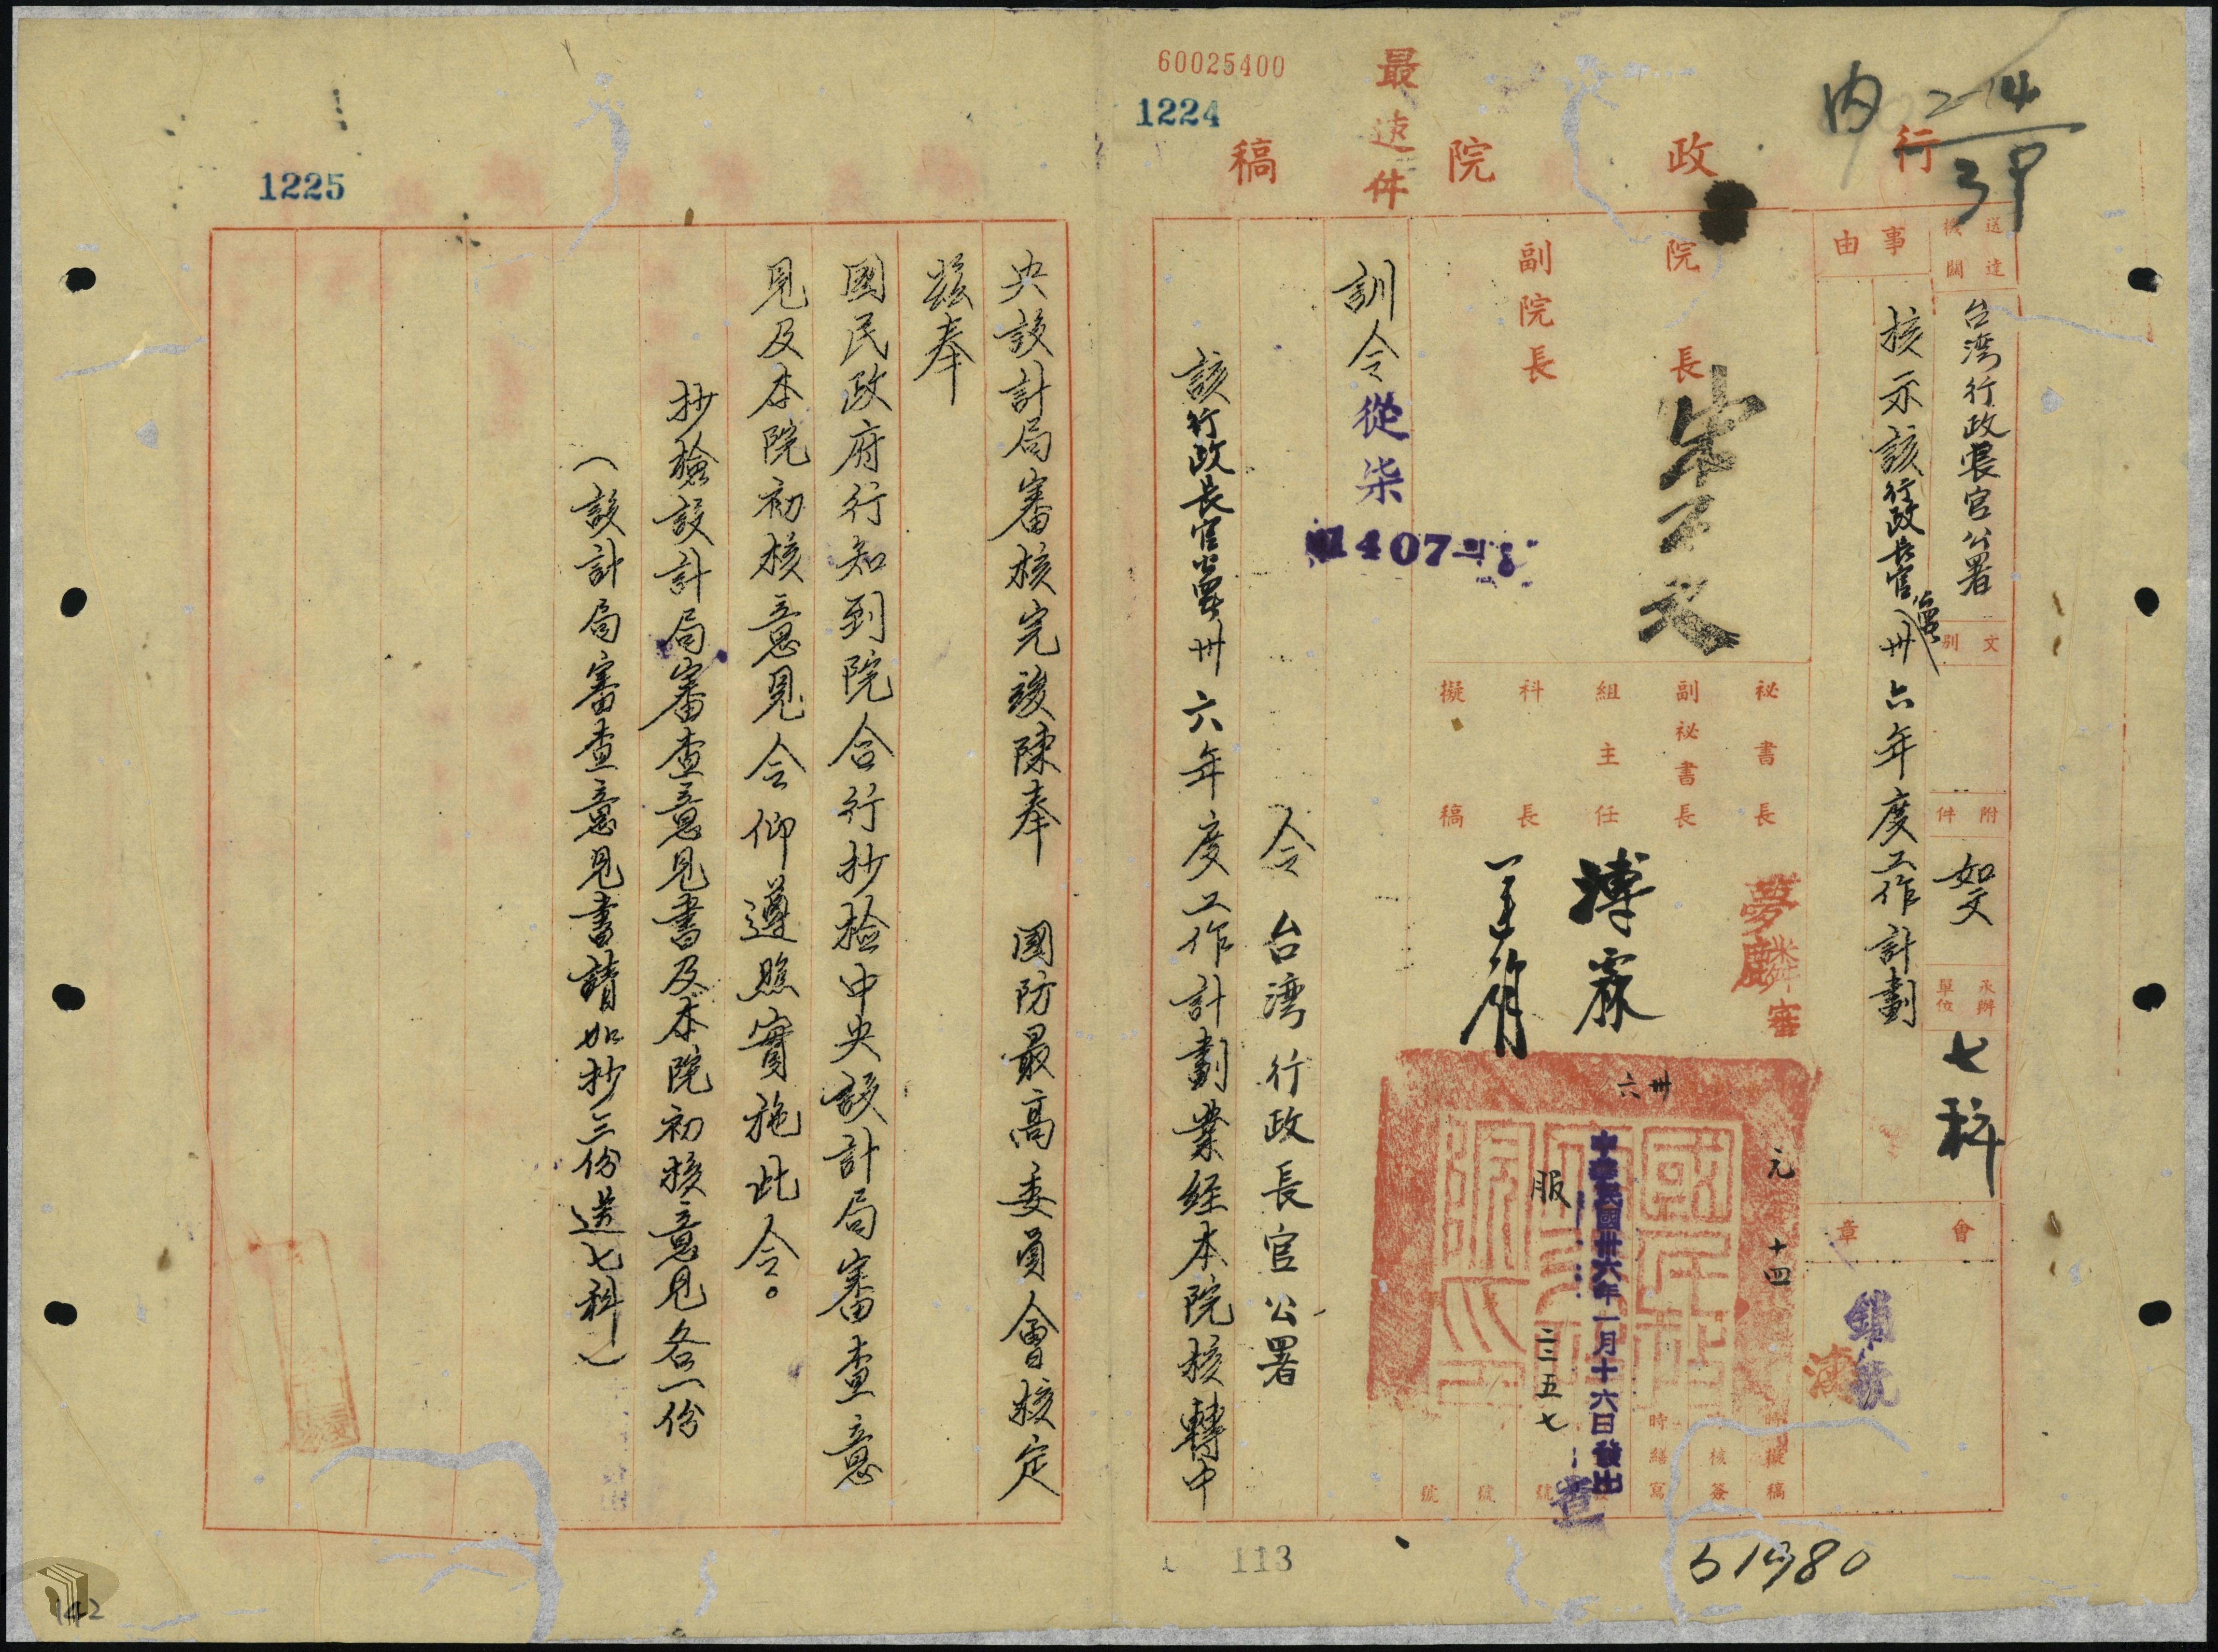 60025400
1224
最速件
行政院稿
內
送達機關
台湾行政長官公署
文別
附件
如文
承辦單位
七科
事由
核示該行政長官公署卅六年度工作計劃
會章
院長
宋子文
副院長
秘書長
夢麟
審
副秘書長
組主任
科長
擬稿
卅六
元
十四
時擬稿
核簽
時繕寫
中華民國卅六年一月十六日發出
服
二三五七
號
號
號
訓令
從柒
令 台湾行政長官公署
該行政長官公署卅六年度工作計劃業经本院核轉中
51980
113
1225
央設計局審核完竣陳奉 國防最高委員會核定
茲奉
國民政府行知到院合行抄檢中央設計局審查意
見及本院初核意見令仰遵照實施此令。
抄檢設計局審查意見書及本院初核意見各一份
(設計局審查意見書請如抄三份送七科)
142